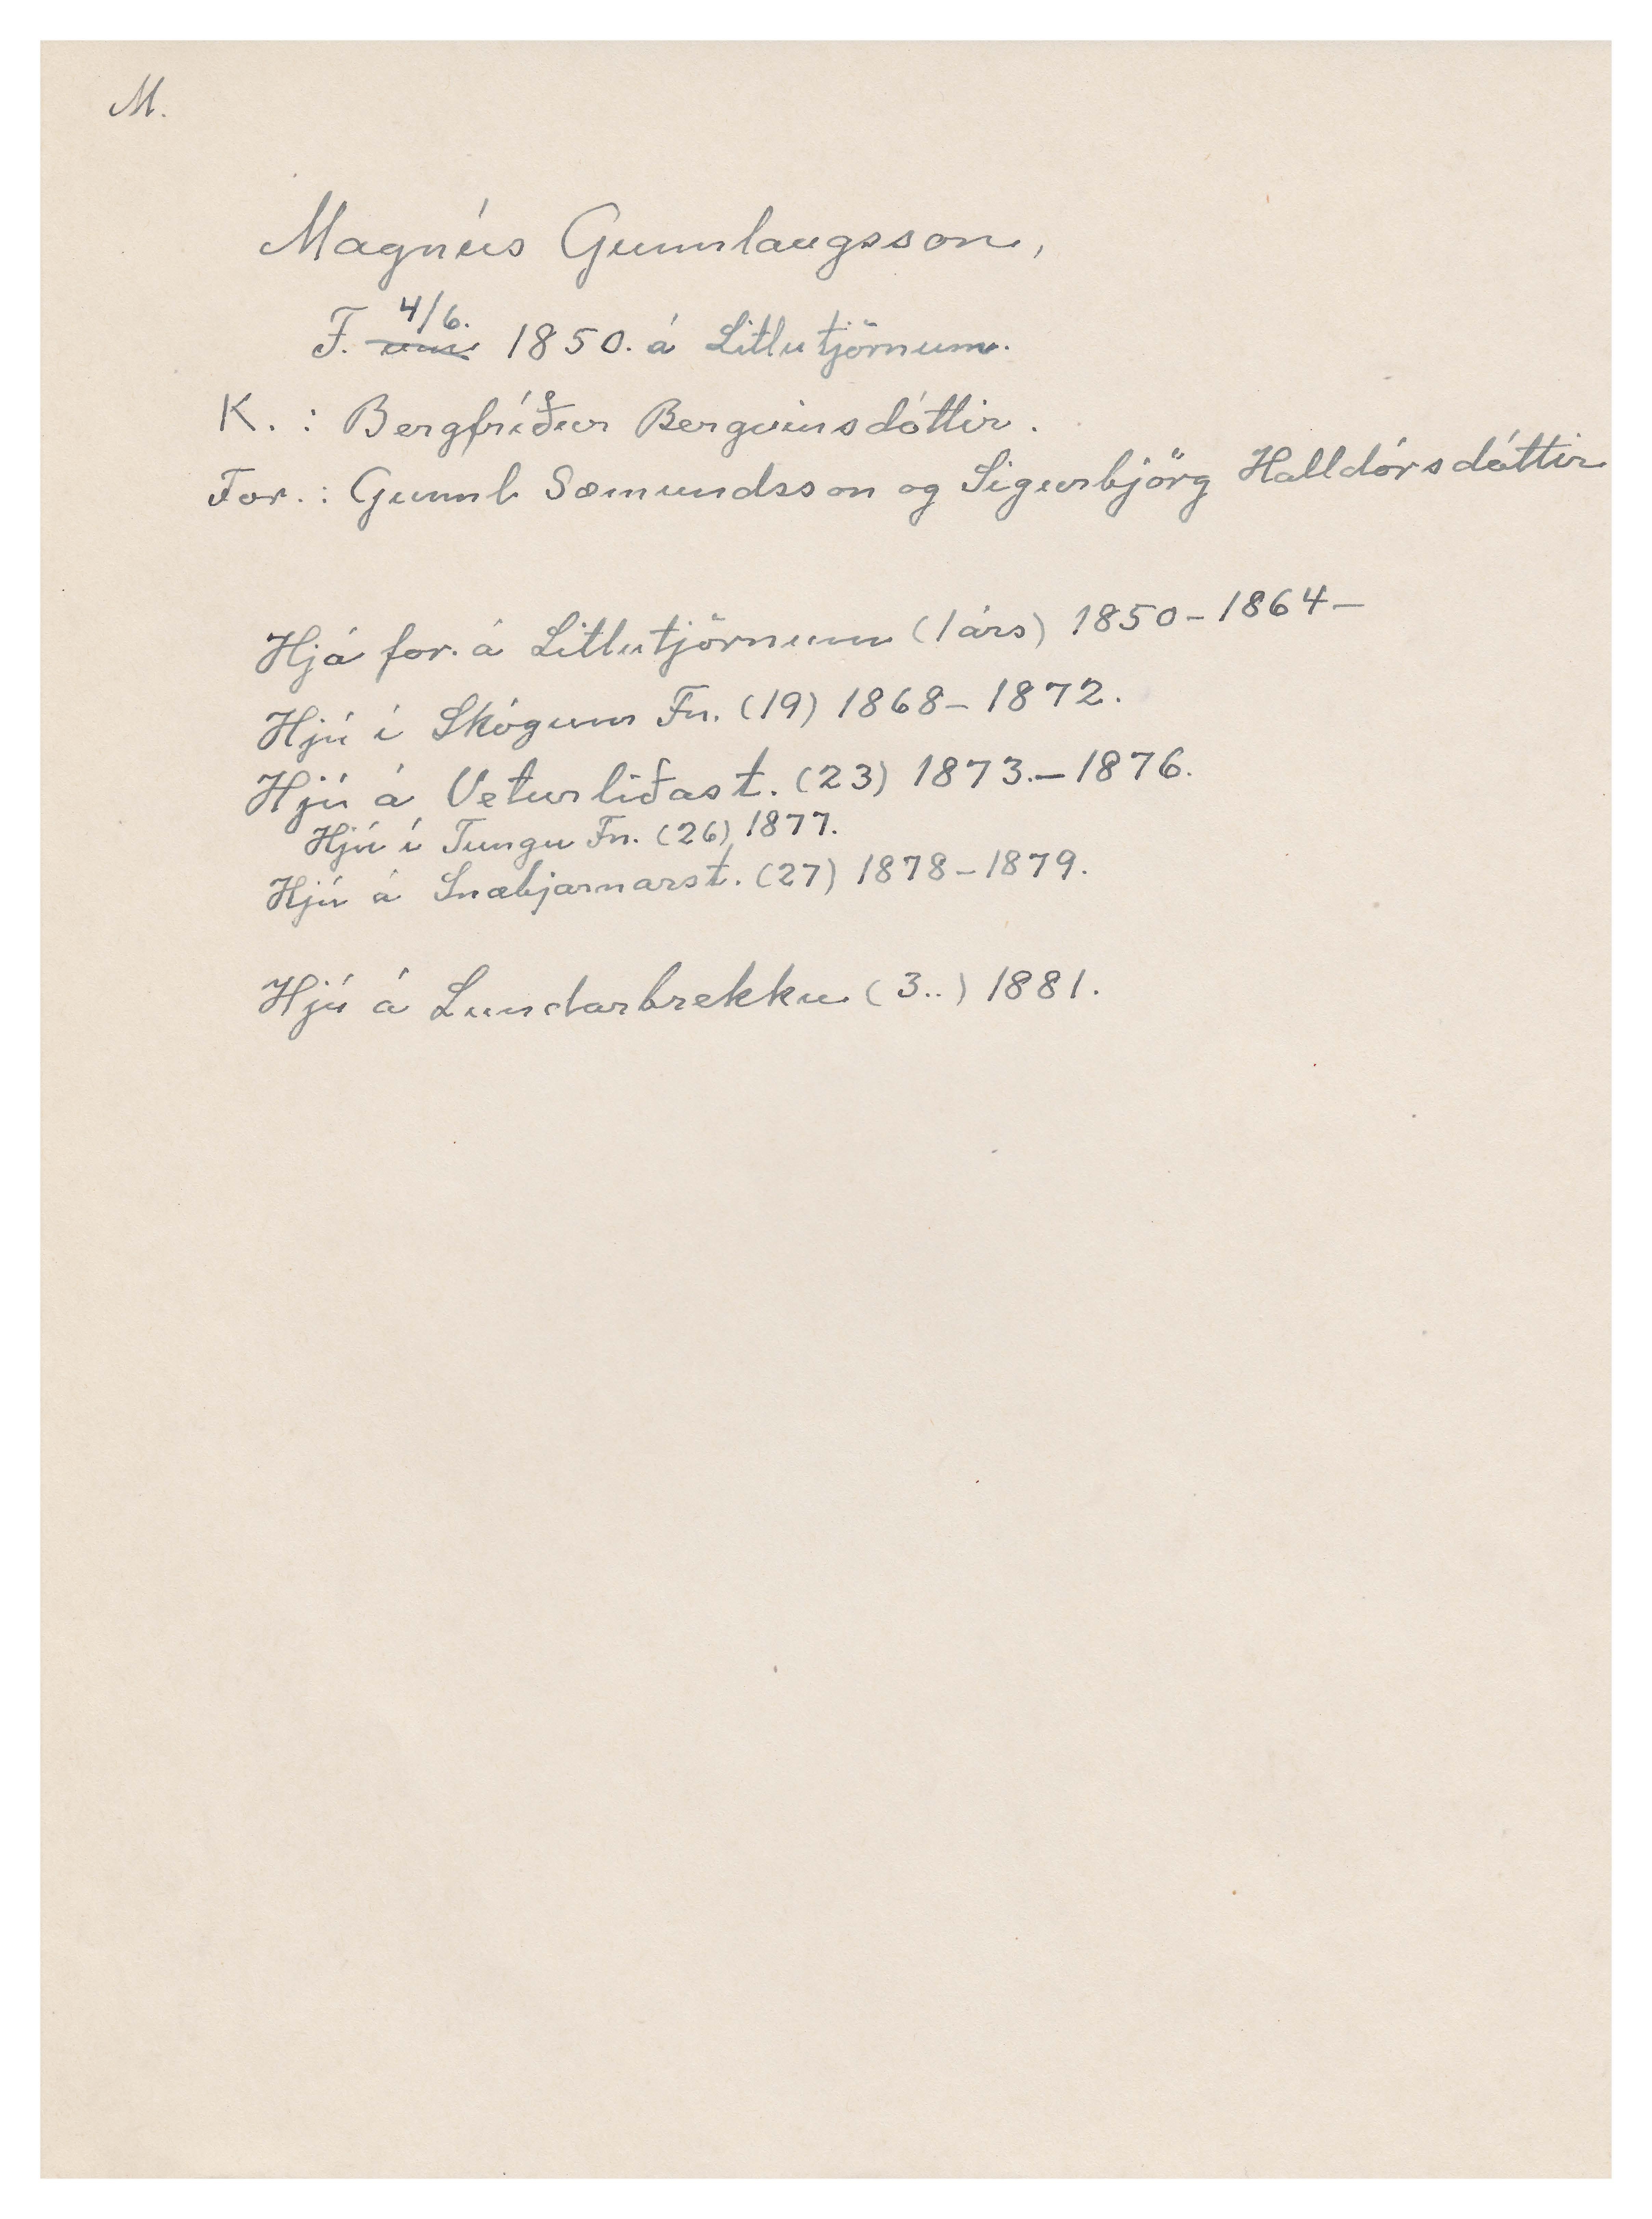 M.
Magnús Gunnlaugsson,
F. 4/6. 1850. á Litlutjörnum.
K. : Bergfríður Bergvinsdóttir.
For. : Gunnl Sæmundsson og Sigurbjörg Halldórsdóttir
Hjá for. á Litlutjörnum (1 árs) 1850-1864-
Hjú í Skógum Fn. (19) 1868-1872.
Hjú á Veturliðast. (23) 1873.-1876.
Hjú í Tungu Fn. (26) 1877.
Hjú á Snæbjarnarst. (27) 1878-1879.
Hjú á Lundarbrekku (3..) 1881.